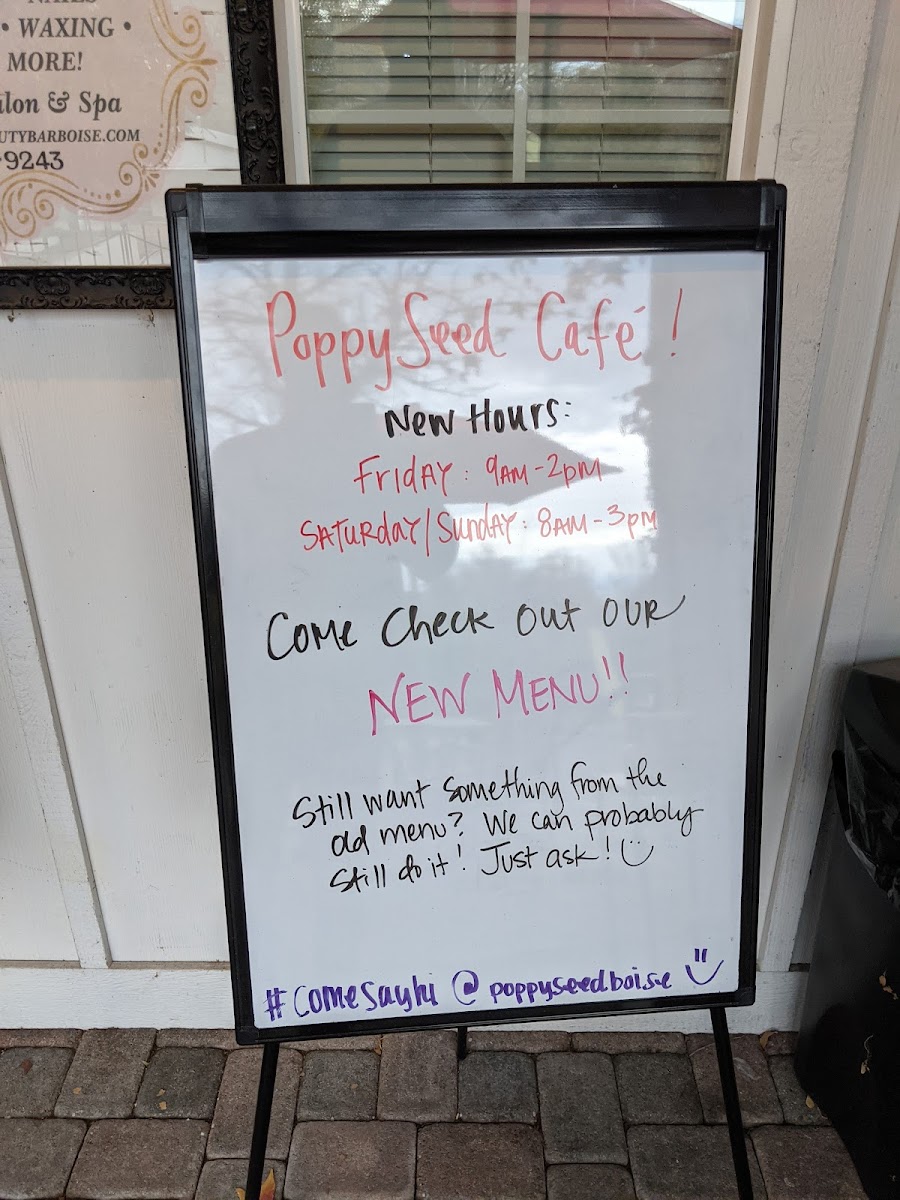 • WAXING •
MORE!
& Spa
9243
PoppySeed Café!
New Hours:
Friday: 9AM-2PM
Saturday/Sunday: 8AM-3PM
Come check out our
NEW MENU!!
Still want something from the
old menu? We can probably
still do it! Just ask!
#comesayhi @poppyseedboise